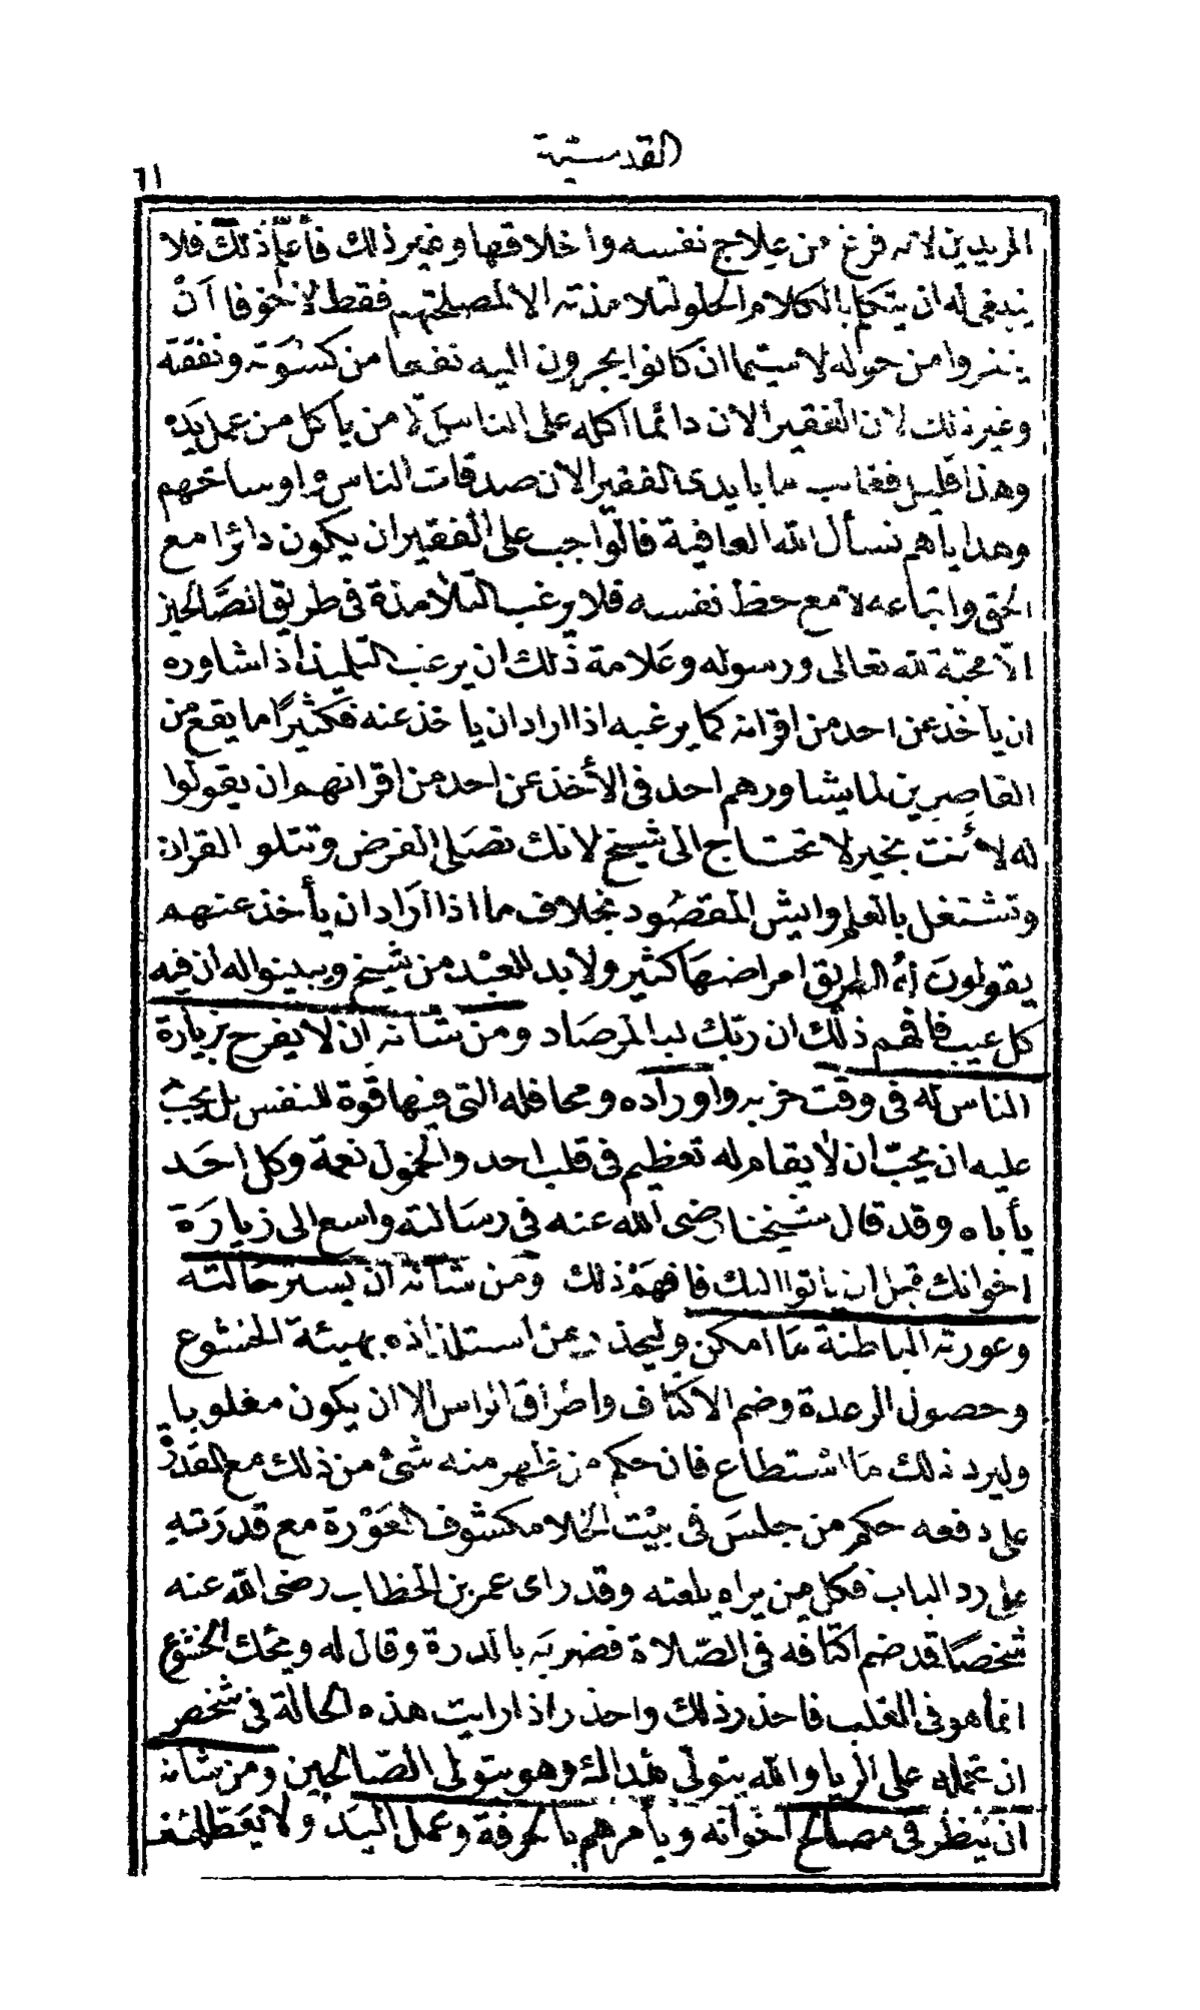 القدسية
٦١
المريدين لانه فرغ من علاج نفسه واخلاقها وغير ذلك فأعلم ذلك فلا
ينبغى له ان يتكلم بالكلام الحلو لتلامذته الا لمصلحتهم فقط لا خوفا أن
ينفروا من حوله لاسيما ان كانوا يجرون اليه نفعا من كسوة ونفقة
وغير ذلك لان الفقير الان دائما اكله على الناس من ياكل من عمل يده
وهذا قليل فغالب ما بايدى الفقير الان صدقات الناس واوساخهم
وهداياهم نسأل الله العافية فالواجب على الفقير ان يكون دائرا مع
الحق واتباعه لا مع حظ نفسه فلا يرغب التلامذة فى طريق الصالحين
الا محبة لله تعالى ورسوله وعلامة ذلك ان يرغب التلميذ اذا شاوره
ان يأخذ عن احد من اقرانه كما يرغبه اذا اراد ان ياخذ عنه فكثيرا ما يقع من
القاصرين لما يشاورهم احد فى الأخذ عن احد من اقرانهم ان يقولوا
له لا أنت بخير لا تحتاج الى شيخ لانك تصلى الفرض وتتلو القران
وتشتغل بالعلم وايش المقصود بخلاف ما اذا اراد ان يأخذ عنهم
يقولون له الطريق امراضها كثير ولابد للعبد من شيخ ويبينوا له ان فيه
كل عيب فافهم ذلك ان ربك لبالمرصاد ومن شانه ان لا يفرح بزيارة
الناس له فى وقت حزبه واوراده ومحافله التى فيها قوة للنفس بل يجب
عليه ان يحب ان لا يقام له تعظيم فى قلب احد والخمول نعمة وكل احد
يأباه وقد قال شيخنا رضى الله عنه فى رسالته واسع الى زيارة
اخوانك قبل ان ياتوا اليك فافهم ذلك ومن شانه ان يستر حالته
وعورته الباطنة ما امكن وليحذر من استلذاذه بهيئة الخشوع
وحصول الرعدة وضم الاكتاف واطراق الراس الا ان يكون مغلوبا
وليرد ذلك ما استطاع فان حكم من ظهر منه شئ من ذلك مع القدر
على دفعه حكم من جلس فى بيت الخلا مكشوف العورة مع قدرته
على رد الباب فكل من يراه يلعنه وقد راى عمر بن الخطاب رضى الله عنه
شخصا قد ضم اكتافه فى الصلاة فضربه بالدرة وقال له ويحك الخشوع
انما هو فى القلب فاحذر ذلك واحذر اذا رايت هذه الحالة فى شخص
ان تحمله على الريا والله يتولى هداك وهو يتولى الصالحين ومن شانه
ان ينظر فى مصالح اخوانه ويأمرهم بالحرفة وعمل اليد ولا يعط